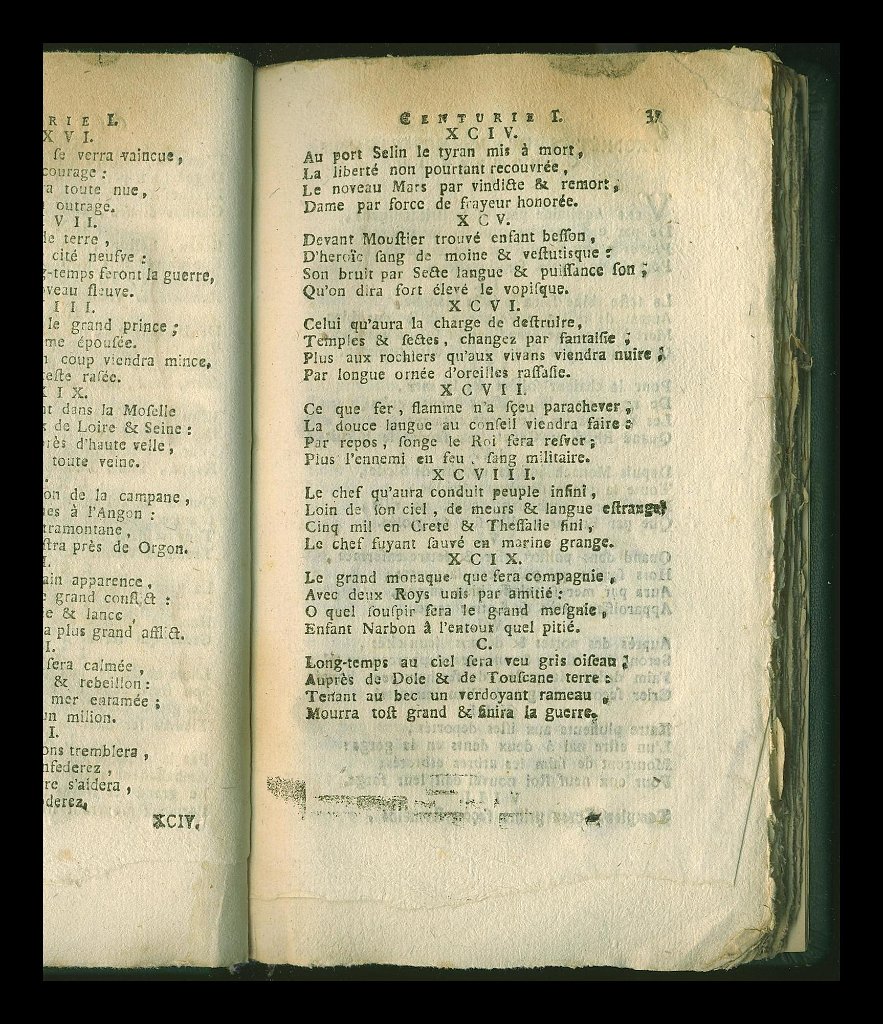 RIE I.
XVI.
ſe verra vaincue,
courage :
a toute nue,
outrage.
VII.
le terre,
cité neufve :
g-temps feront la guerre,
veau fleuve.
III.
le grand prince ;
me épouſée.
coup viendra mince,
teſte raſée.
IX.
nt dans la Moſelle
de Loire & Seine :
rès d'haute velle,
toute veine.
on de la campane,
es à l'Angon :
tramontane,
ſtra près de Orgon.
I.
ain apparence,
e grand conflict :
e & lance,
a plus grand afflict.
I.
ſera calmée,
& rebeillon :
mer entamée ;
un milion.
I.
ons tremblera,
nfederez,
re s'aidera,
derez,
XCIV.
CENTURIE I. 37
XCIV.
Au port Selin le tyran mis à mort,
La liberté non pourtant recouvrée,
Le noveau Mars par vindicte & remort,
Dame par force de frayeur honorée.
XCV.
Devant Mouſtier trouvé enfant beſſon,
D'heroïc ſang de moine & veſtutisque :
Son bruit par Secte langue & puiſſance ſon ;
Qu'on dira fort élevé le vopiſque.
XCVI.
Celui qu'aura la charge de deſtruire,
Temples & ſectes, changez par fantaiſie ;
Plus aux rochiers qu'aux vivans viendra nuire ;
Par longue ornée d'oreilles raſſaſie.
XCVII.
Ce que fer, flamme n'a ſçeu parachever,
La douce langue au conſeil viendra faire :
Par repos, ſonge le Roi ſera reſver ;
Plus l'ennemi en feu, ſang militaire.
XCVIII.
Le chef qu'aura conduit peuple infini,
Loin de ſon ciel, de meurs & langue eſtrange,
Cinq mil en Crete & Theſſalie fini,
Le chef fuyant ſauvé en marine grange.
XCIX.
Le grand monaque que ſera compagnie,
Avec deux Roys unis par amitié :
O quel ſouſpir ſera le grand meſgnie,
Enfant Narbon à l'entour quel pitié.
C.
Long-temps au ciel ſera veu gris oiſeau ;
Auprès de Dole & de Touſcane terre :
Tenant au bec un verdoyant rameau,
Mourra toſt grand & finira la guerre.